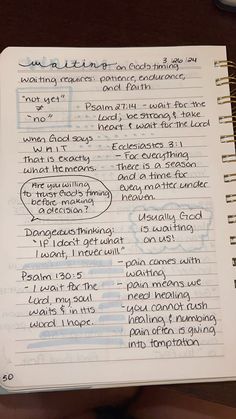 waiting on God's timing 3/26/24
waiting requires: patience, endurance,
and faith
"not yet"
≠
"no"
- Psalm 27:14 - wait for the
Lord; be strong & take
heart & wait for the Lord
when God says
WAIT
That is exactly
what He means.
- Ecclesiastes 3:1
- For everything
There is a season
and a time for
every matter under
heaven
Are you willing
to trust God's timing
before making
a decision?
Usually God
is waiting
on us!
Dangerous thinking:
"IF I don't get what
I want, I never will"
Psalm 130:5
- I wait for the
Lord, my soul
waits & in His
word I hope.
- pain comes with
waiting
- pain means we
need healing
- you cannot rush
healing & numbing
pain often is giving
into temptation
50